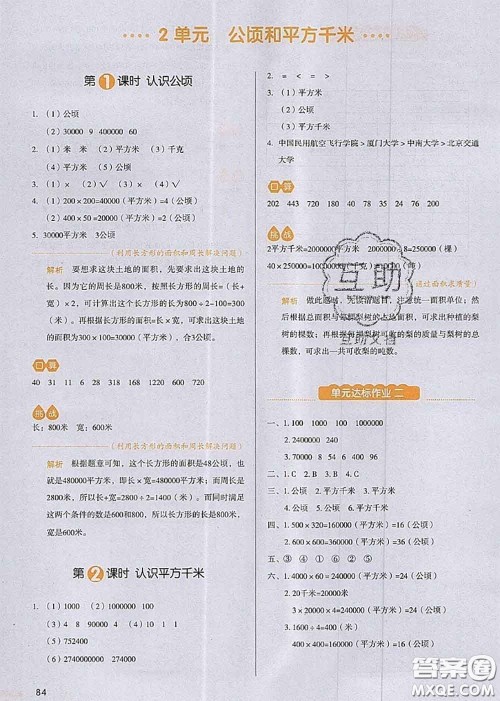 2 单元 公顷和平方千米
第1课时 认识公顷
1. (1)公顷
(2)30000 9 400000 60
2. (1)米 米 (2)平方米 (3)千克
(4)平方米 (5)公顷
3. (1)× (2)× (3)√ (4)√
4. (1)200×200=40000(平方米)=4(公顷)
(2)400×50=20000(平方米)=2(公顷)
5. 30000平方米 3公顷
(利用长方形的面积和周长解决问题)
解析 要想求这块土地的面积，先要求这块土地的
长。因为它的周长是800米，根据长方形的周长=(长+
宽)×2，可计算出这个长方形的长为800÷2-100=300
(米)。再根据长方形的面积=长×宽，可求出这块土地
的面积为300×100=30000(平方米)，合3公顷。
口算
40 31 11 28 318 168 1220 600 720
挑战
长：800米 宽：600米
(利用长方形的面积和周长解决问题)
解析 根据题意可知，这个长方形的面积是48公顷，也
就是480000平方米，即长×宽=480000平方米。而周长是
2800米，所以长+宽=2800÷2=1400(米)。而同时满足
这两个条件的数是600和800，所以长方形的长是800米，
宽是600米。
第2课时 认识平方千米
1. (1)1000 (2)1000000 100
(3)10000
(4)8 4 890000 9 5000000 5
(5)752400
(6)2740000000 274000
84
2. = < = >
3. (1)平方米
(2)平方千米
(3)平方千米
4. 中国民用航空飞行学院>厦门大学>中南大学>北京交通
大学
口算
202 443 720 180 40 75 38 34 78 246
挑战
2平方千米=2000000(平方米) 2000000÷8=250000(棵)
解析
树的棵数。再根据梨树的总棵数与每棵梨树产梨的
总棵数，可求出一共可收梨的吨数。
互助
互助文档
单元达标作业二
一、1. 100 10000 1000000
2. 240000 90
3. 70000 54 6 400 9 15
二、1. C 2. B 3. B 4. C
三、1. 公顷 2. 平方千米 3. 平方米
四、1. 500×320=160000(平方米)=16(公顷)
2. 600×400=240000(平方米)=24(公顷)
五、⑤ ④ ② ⑥ ① ③
六、1. 400×600=240000(平方米)=24(公顷)
2. 20千米=20000米
3×20000×4=240000(平方米)=24(公顷)
3. 1600÷4=400(米)
400×400=160000(平方米)=16(公顷)
答案圈
MXQE.COM